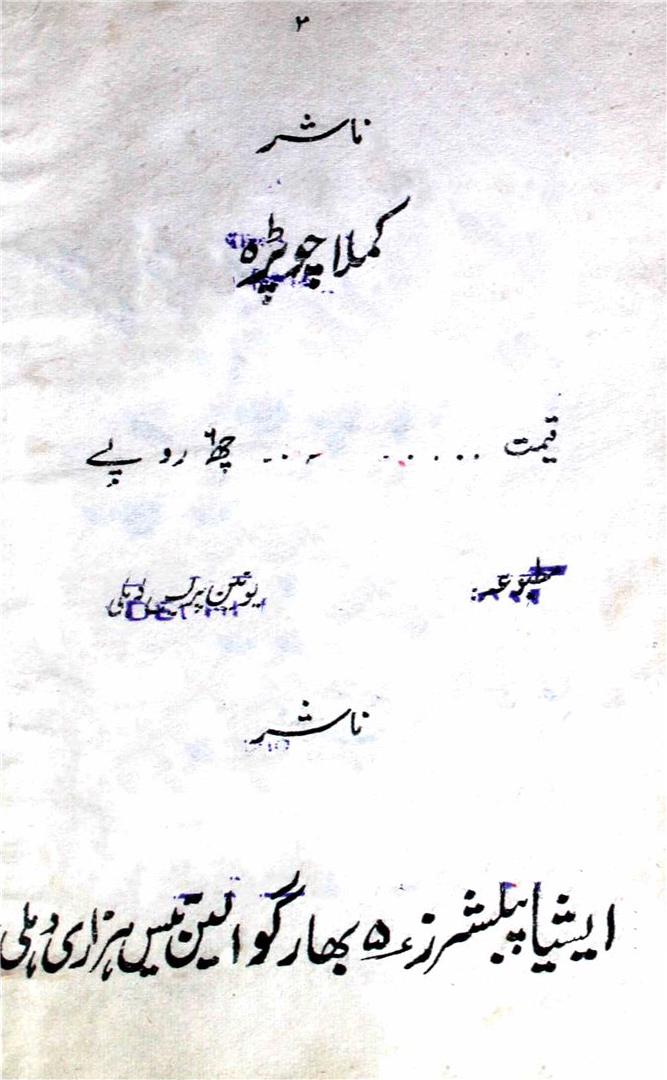 ۳
ناشر
کملا چوپڑہ
قیمت ........ چھ روپے
مطبوعہ: یونین پریس دہلی
ناشر
ایشیا پبلشرز، ۵ بھارگوا لین تیس ہزاری دہلی